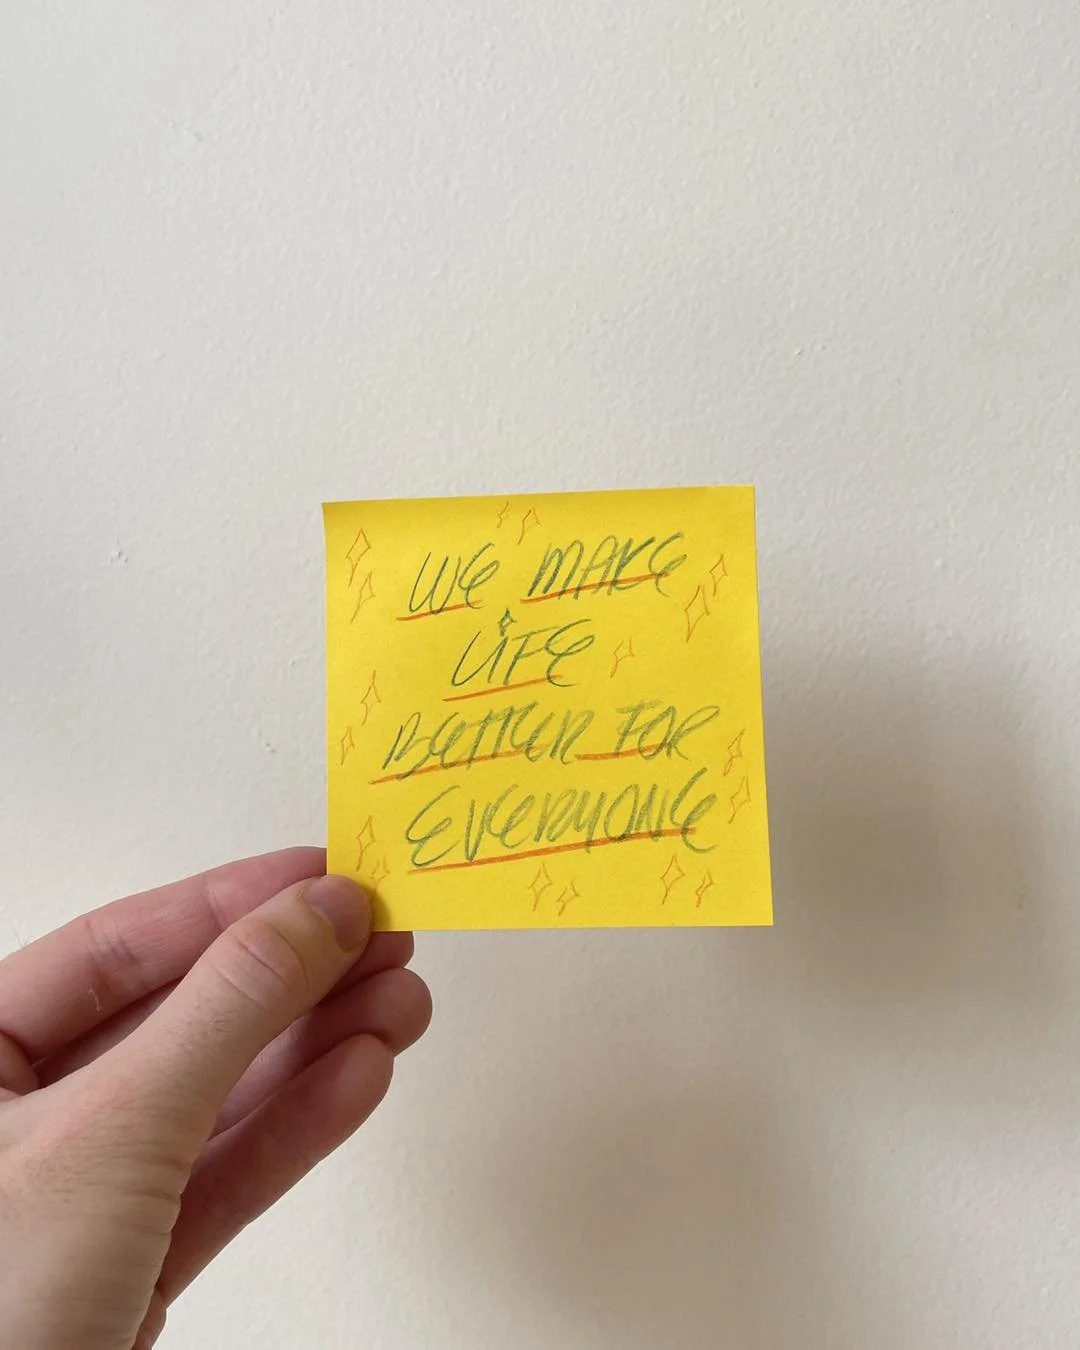 WE MAKE
LIFE
BETTER FOR
EVERYONE